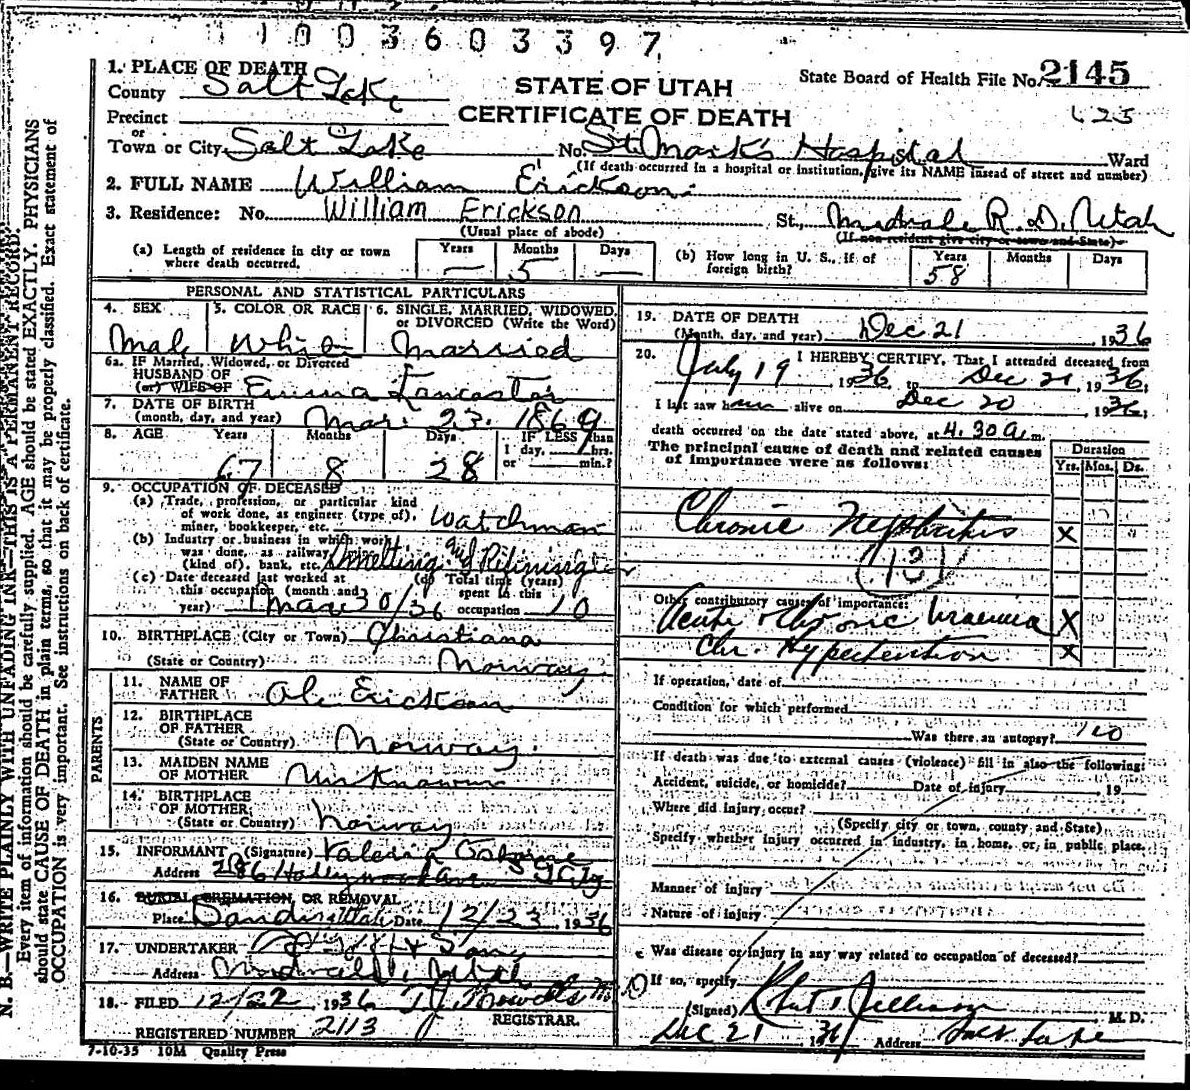 1003603397
1. PLACE OF DEATH
County Salt Lake
STATE OF UTAH
CERTIFICATE OF DEATH
State Board of Health File No. 2145
Precinct
or
Town or City Salt Lake No. St. Mark's Hospital Ward
(If death occurred in a hospital or institution, give its NAME instead of street and number)
2. FULL NAME William Erickson
3. Residence: No. William Erickson St., Midvale R. D. Utah
(Usual place of abode) (If non-resident give city or town and State)
(a) Length of residence in city or town where death occurred. Years — Months 5 Days —
(b) How long in U. S., if of foreign birth? Years 58 Months Days
PERSONAL AND STATISTICAL PARTICULARS
4. SEX Male
5. COLOR OR RACE White
6. SINGLE, MARRIED, WIDOWED, or DIVORCED (Write the Word) Married
6a. IF Married, Widowed, or Divorced
HUSBAND OF
(or) WIFE OF Emma Lancaster
7. DATE OF BIRTH
(month, day, and year) Mar. 23. 1869
8. AGE Years 67 Months 8 Days 28 IF LESS than 1 day, hrs. or min.?
9. OCCUPATION OF DECEASED
(a) Trade, profession, or particular kind
of work done, as engineer (type of),
miner, bookkeeper, etc. Watchman
(b) Industry or business in which work
was done, as railway
(kind of), bank, etc. Smelting and
(c) Date deceased last worked at
this occupation (month and
year) 30/36
(d) Total time (years)
spent in this
occupation 10
10. BIRTHPLACE (City or Town) Christiana
(State or Country) Norway
PARENTS
11. NAME OF
FATHER Ole Erickson
12. BIRTHPLACE
OF FATHER
(State or Country) Norway.
13. MAIDEN NAME
OF MOTHER Unknown
14. BIRTHPLACE
OF MOTHER
(State or Country) Norway
15. INFORMANT (Signature) Valeria
Address Hollywood Ave
16. BURIAL, CREMATION, OR REMOVAL
Place Sandy Utah Date 12/23 1936
17. UNDERTAKER & Son
Address Midvale, Utah
18. FILED 12/22, 1936 T J Howells
REGISTRAR.
REGISTERED NUMBER 2113
7-10-35 10M Quality Press
19. DATE OF DEATH
(Month, day, and year) Dec 21, 1936
20. I HEREBY CERTIFY, That I attended deceased from
July 19, 1936 to Dec 21, 1936;
I last saw him alive on Dec 20, 1936;
death occurred on the date stated above, at 4.30 a m.
The principal cause of death and related causes
of importance were as follows:
Duration
Yrs. Mos. Ds.
Chronic Nephritis X
Other contributory causes of importance:
Acute & Chronic Uraemia X
Chr Hypertention X
If operation, date of
Condition for which performed
Was there an autopsy? no
If death was due to external causes (violence) fill in also the following:
Accident, suicide, or homicide? Date of injury , 19
Where did injury occur?
(Specify city or town, county and State)
Specify whether injury occurred in industry, in home, or in public place.
Manner of injury
Nature of injury
Was disease or injury in any way related to occupation of deceased?
If so, specify
(Signed) M. D.
Dec 21 1936 Address Salt Lake
N. B.—WRITE PLAINLY WITH UNFADING INK—THIS IS A PERMANENT RECORD.
Every item of information should be carefully supplied. AGE should be stated EXACTLY. PHYSICIANS
should state CAUSE OF DEATH in plain terms, so that it may be properly classified. Exact statement of
OCCUPATION is very important. See instructions on back of certificate.